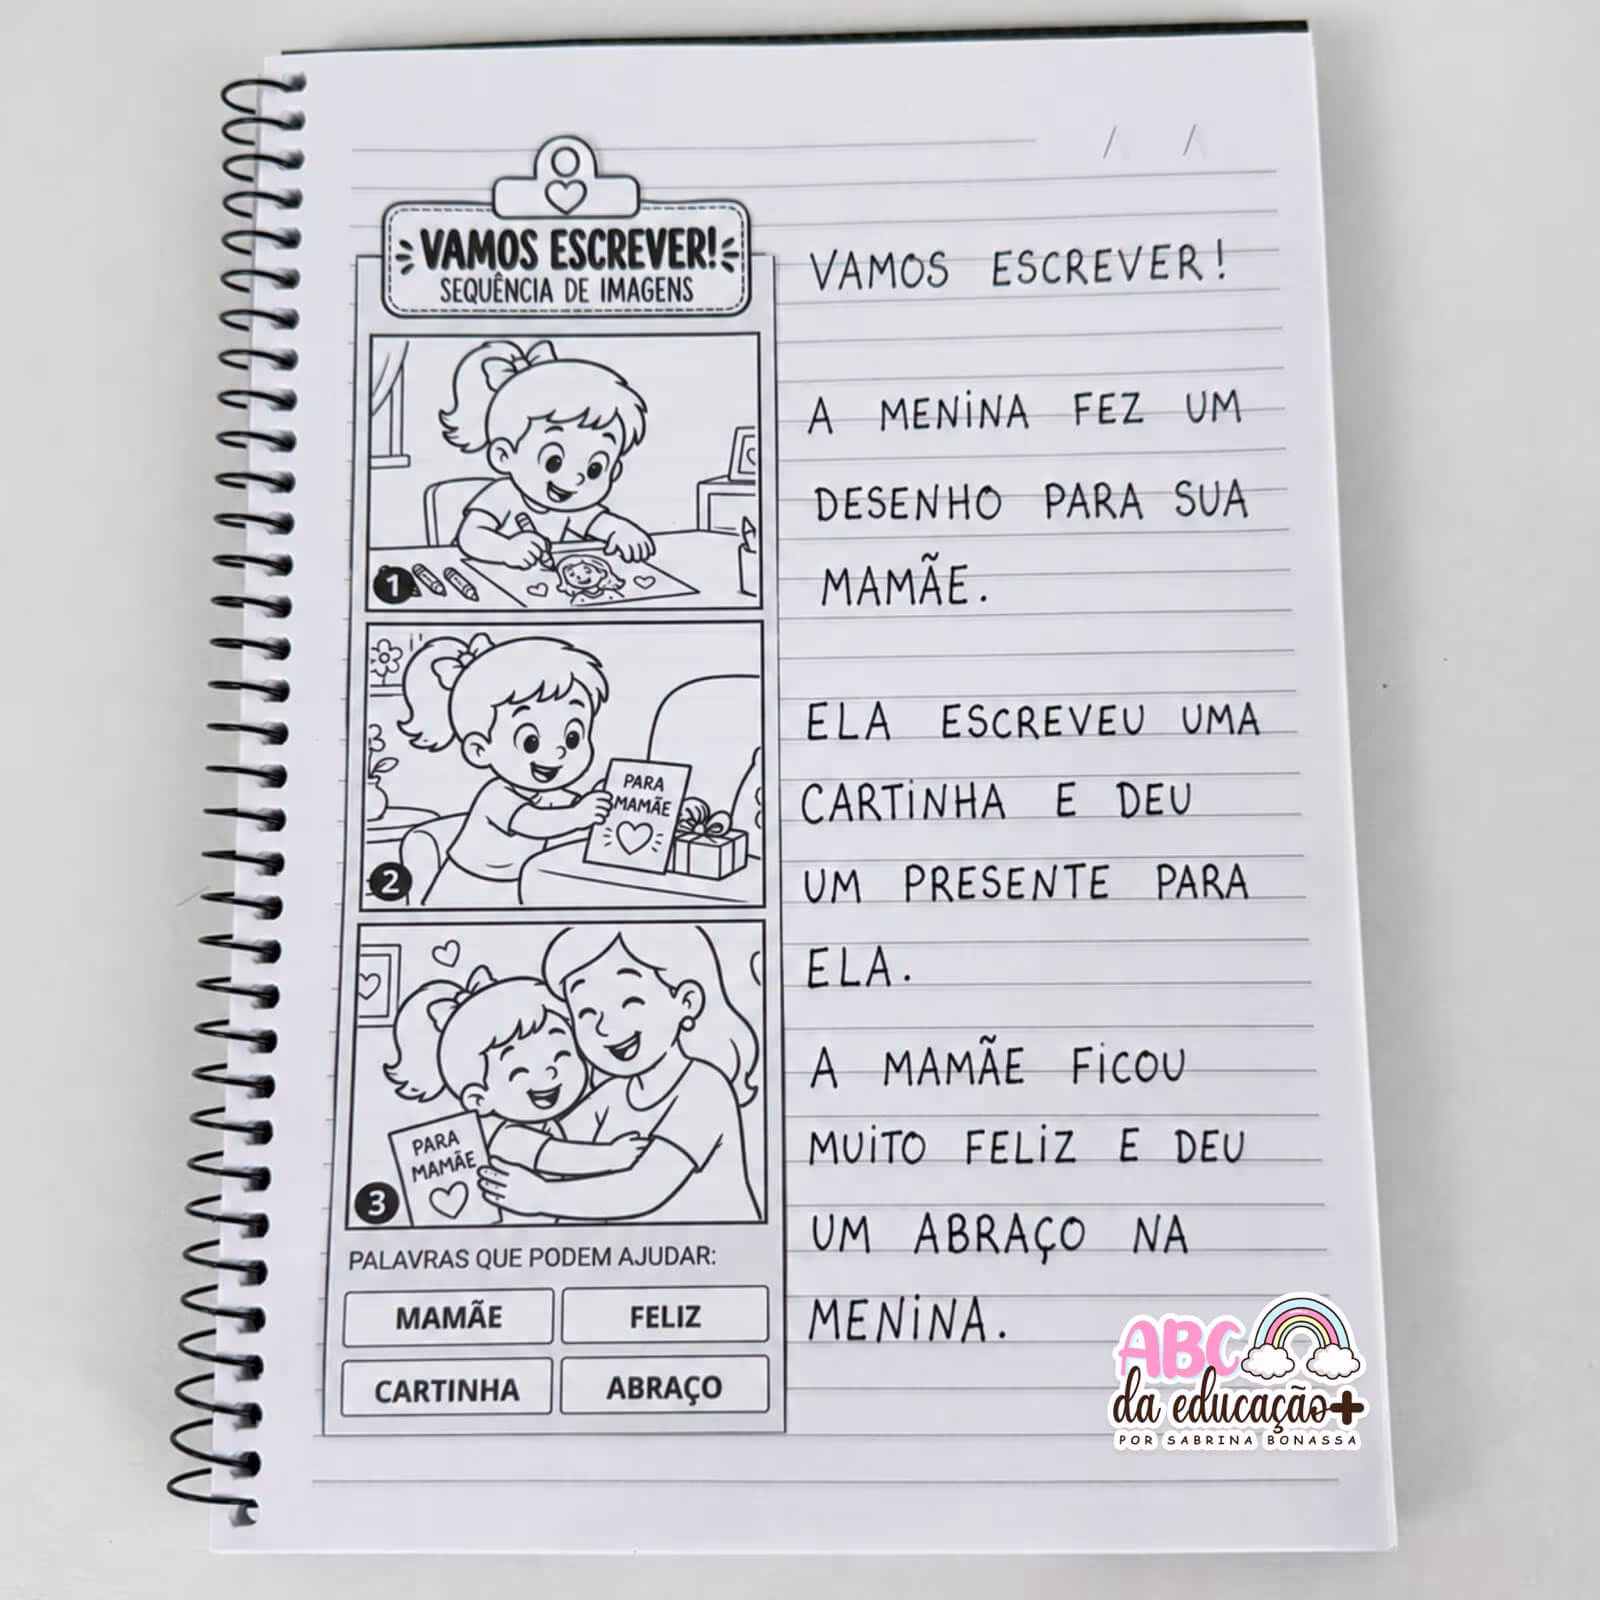 VAMOS ESCREVER!
SEQUÊNCIA DE IMAGENS
1
PARA
MAMÃE
2
PARA
MAMÃE
3
PALAVRAS QUE PODEM AJUDAR:
MAMÃE
FELIZ
CARTINHA
ABRAÇO
/ /
VAMOS ESCREVER!
A MENINA FEZ UM
DESENHO PARA SUA
MAMÃE.
ELA ESCREVEU UMA
CARTINHA E DEU
UM PRESENTE PARA
ELA.
A MAMÃE FICOU
MUITO FELIZ E DEU
UM ABRAÇO NA
MENINA.
ABC
da educação+
POR SABRINA BONASSA